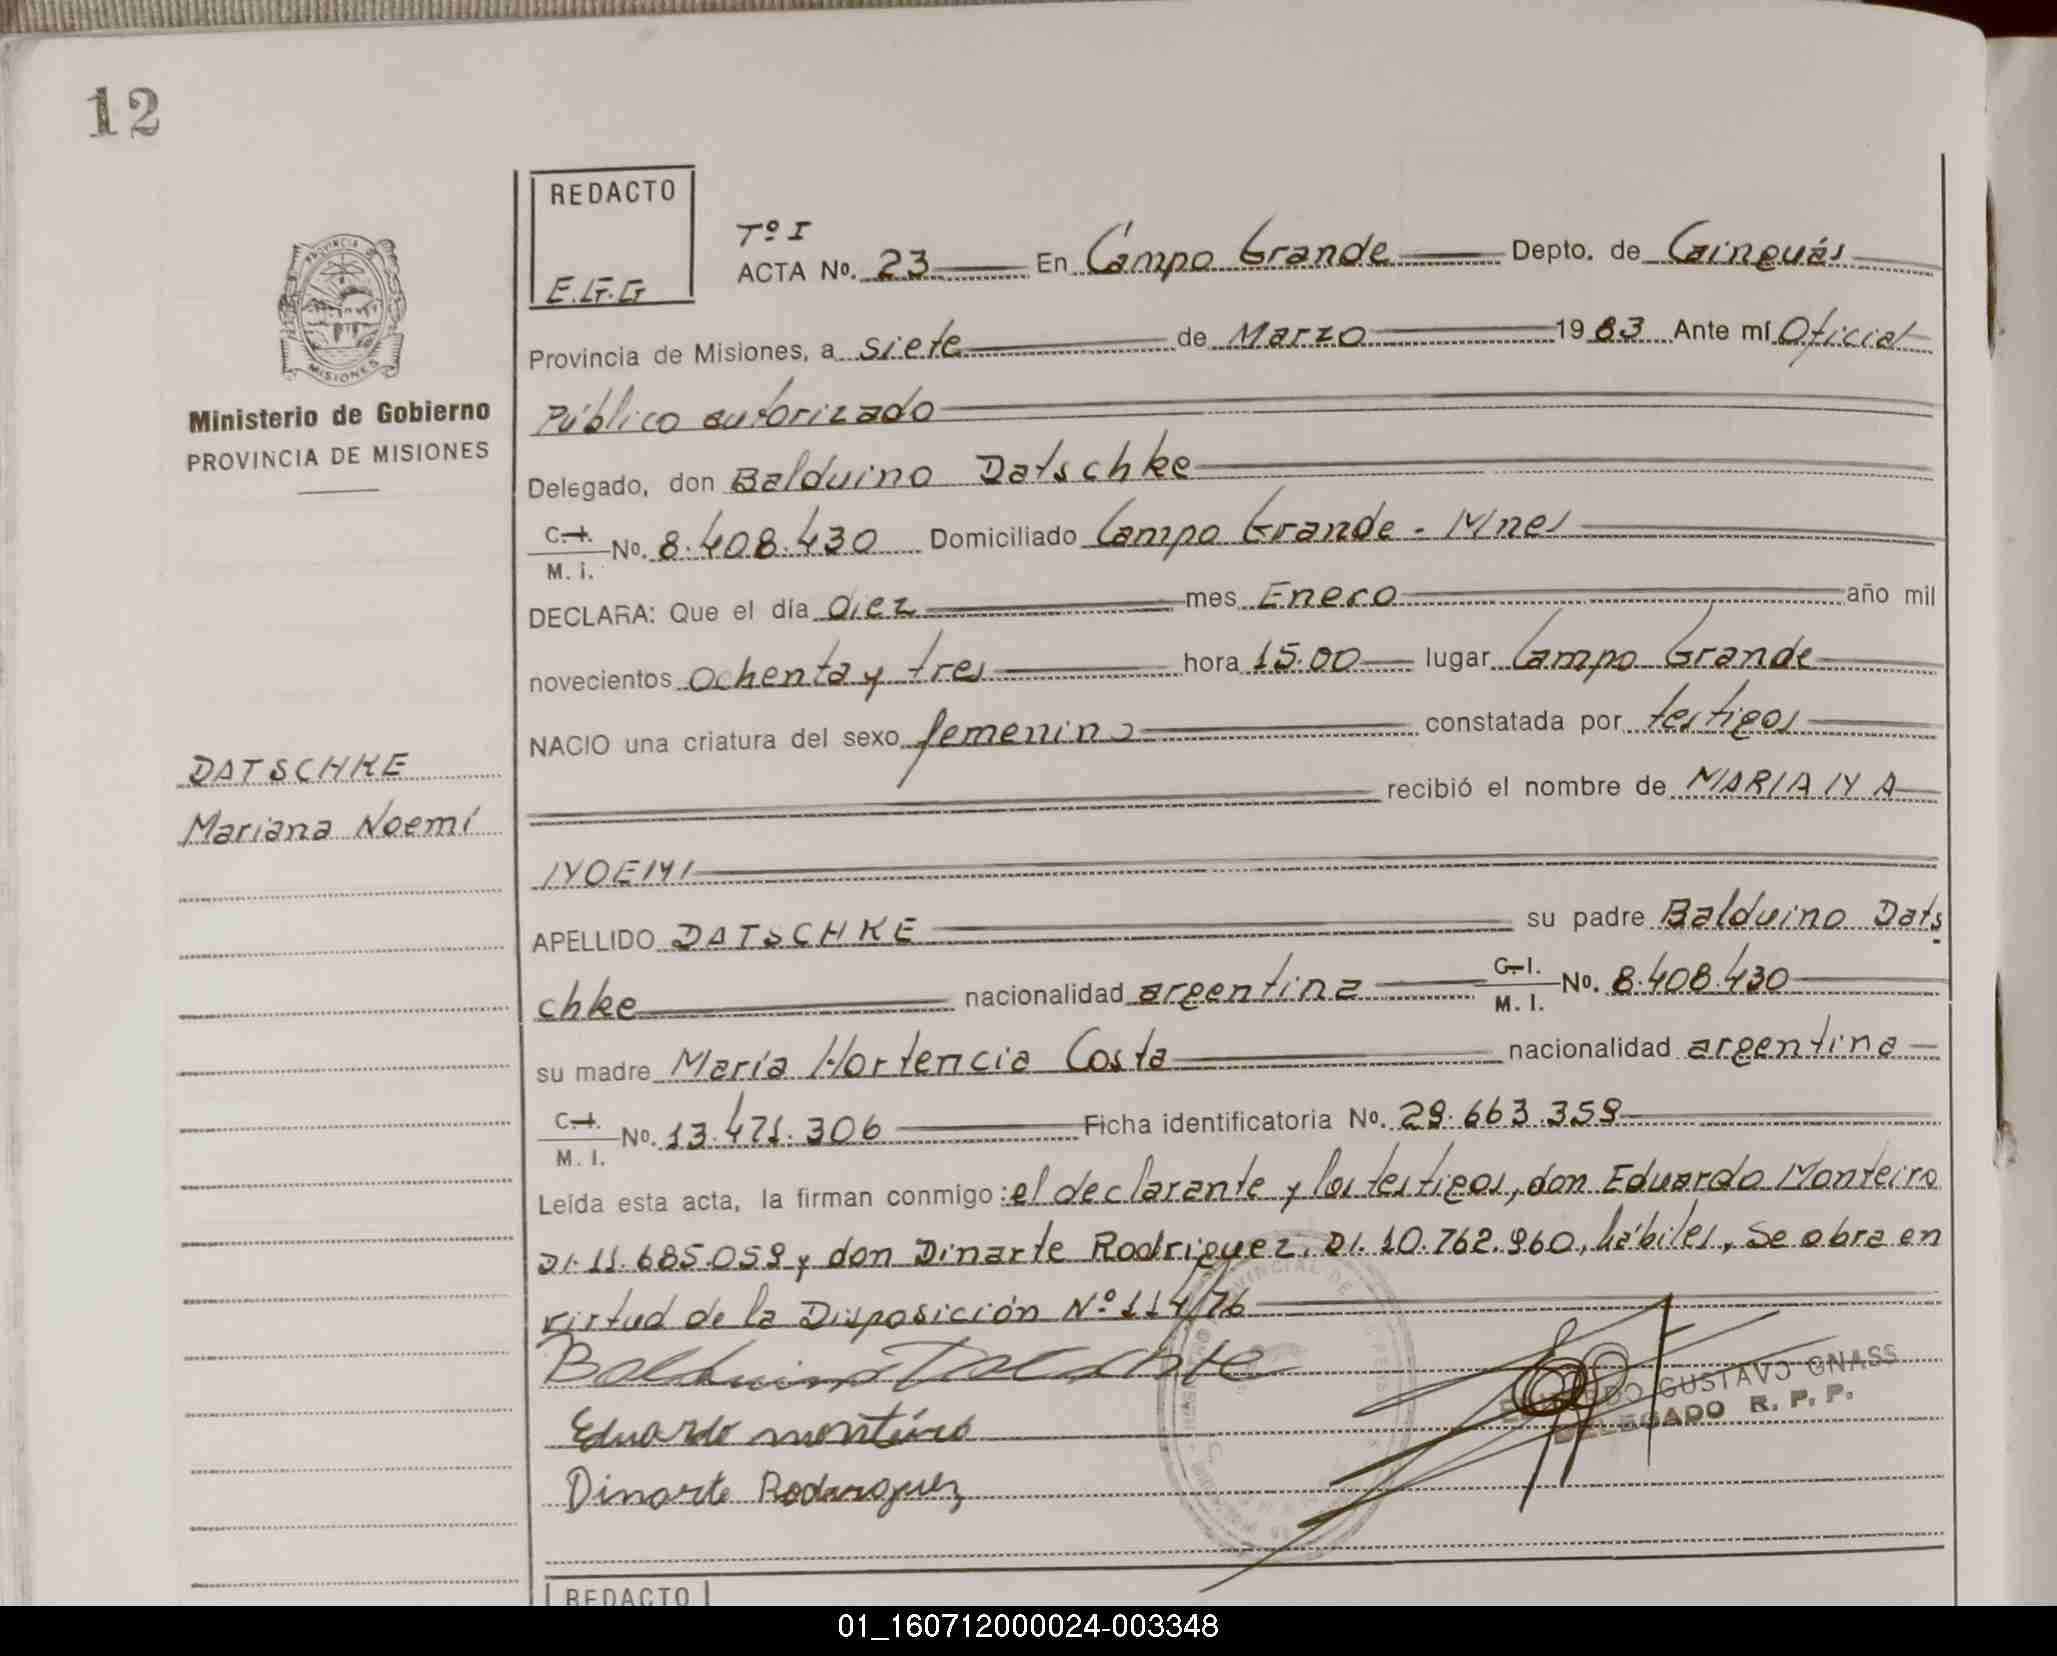 12
REDACTO
E.G.G
Tº I
ACTA No. 23 En Campo Grande Depto. de Cainguás
Provincia de Misiones, a siete de Marzo 1983 Ante mí Oficial
Público autorizado
Delegado, don Balduino Datschke
C.I. M. I. No. 8.408.430 Domiciliado Campo Grande - Mnes
DECLARA: Que el día diez mes Enero año mil
novecientos ochenta y tres hora 15.00 lugar Campo Grande
NACIO una criatura del sexo femenino constatada por testigos
recibió el nombre de MARIANA
NOEMI
APELLIDO DATSCHKE su padre Balduino Dats
chke nacionalidad argentina C.I. M. I. No. 8.408.430
su madre María Hortencia Costa nacionalidad argentina
C.I. M. I. No. 13.471.306 Ficha identificatoria No. 29.663.359
Leída esta acta, la firman conmigo: el declarante y los testigos, don Eduardo Monteiro
DI. 11.685.059 y don Dinarte Rodriguez, DI. 10.762.960, hábiles, Se obra en
virtud de la Disposición Nº 114/76
Balduino Datschke
Eduardo monteiro
Dinarte Rodriguez
EDUARDO GUSTAVO GNASS
DELEGADO R. P. P.
PROVINCIA DE
MISIONES
Ministerio de Gobierno
PROVINCIA DE MISIONES
DATSCHKE
Mariana Noemí
REDACTO
01_160712000024-003348